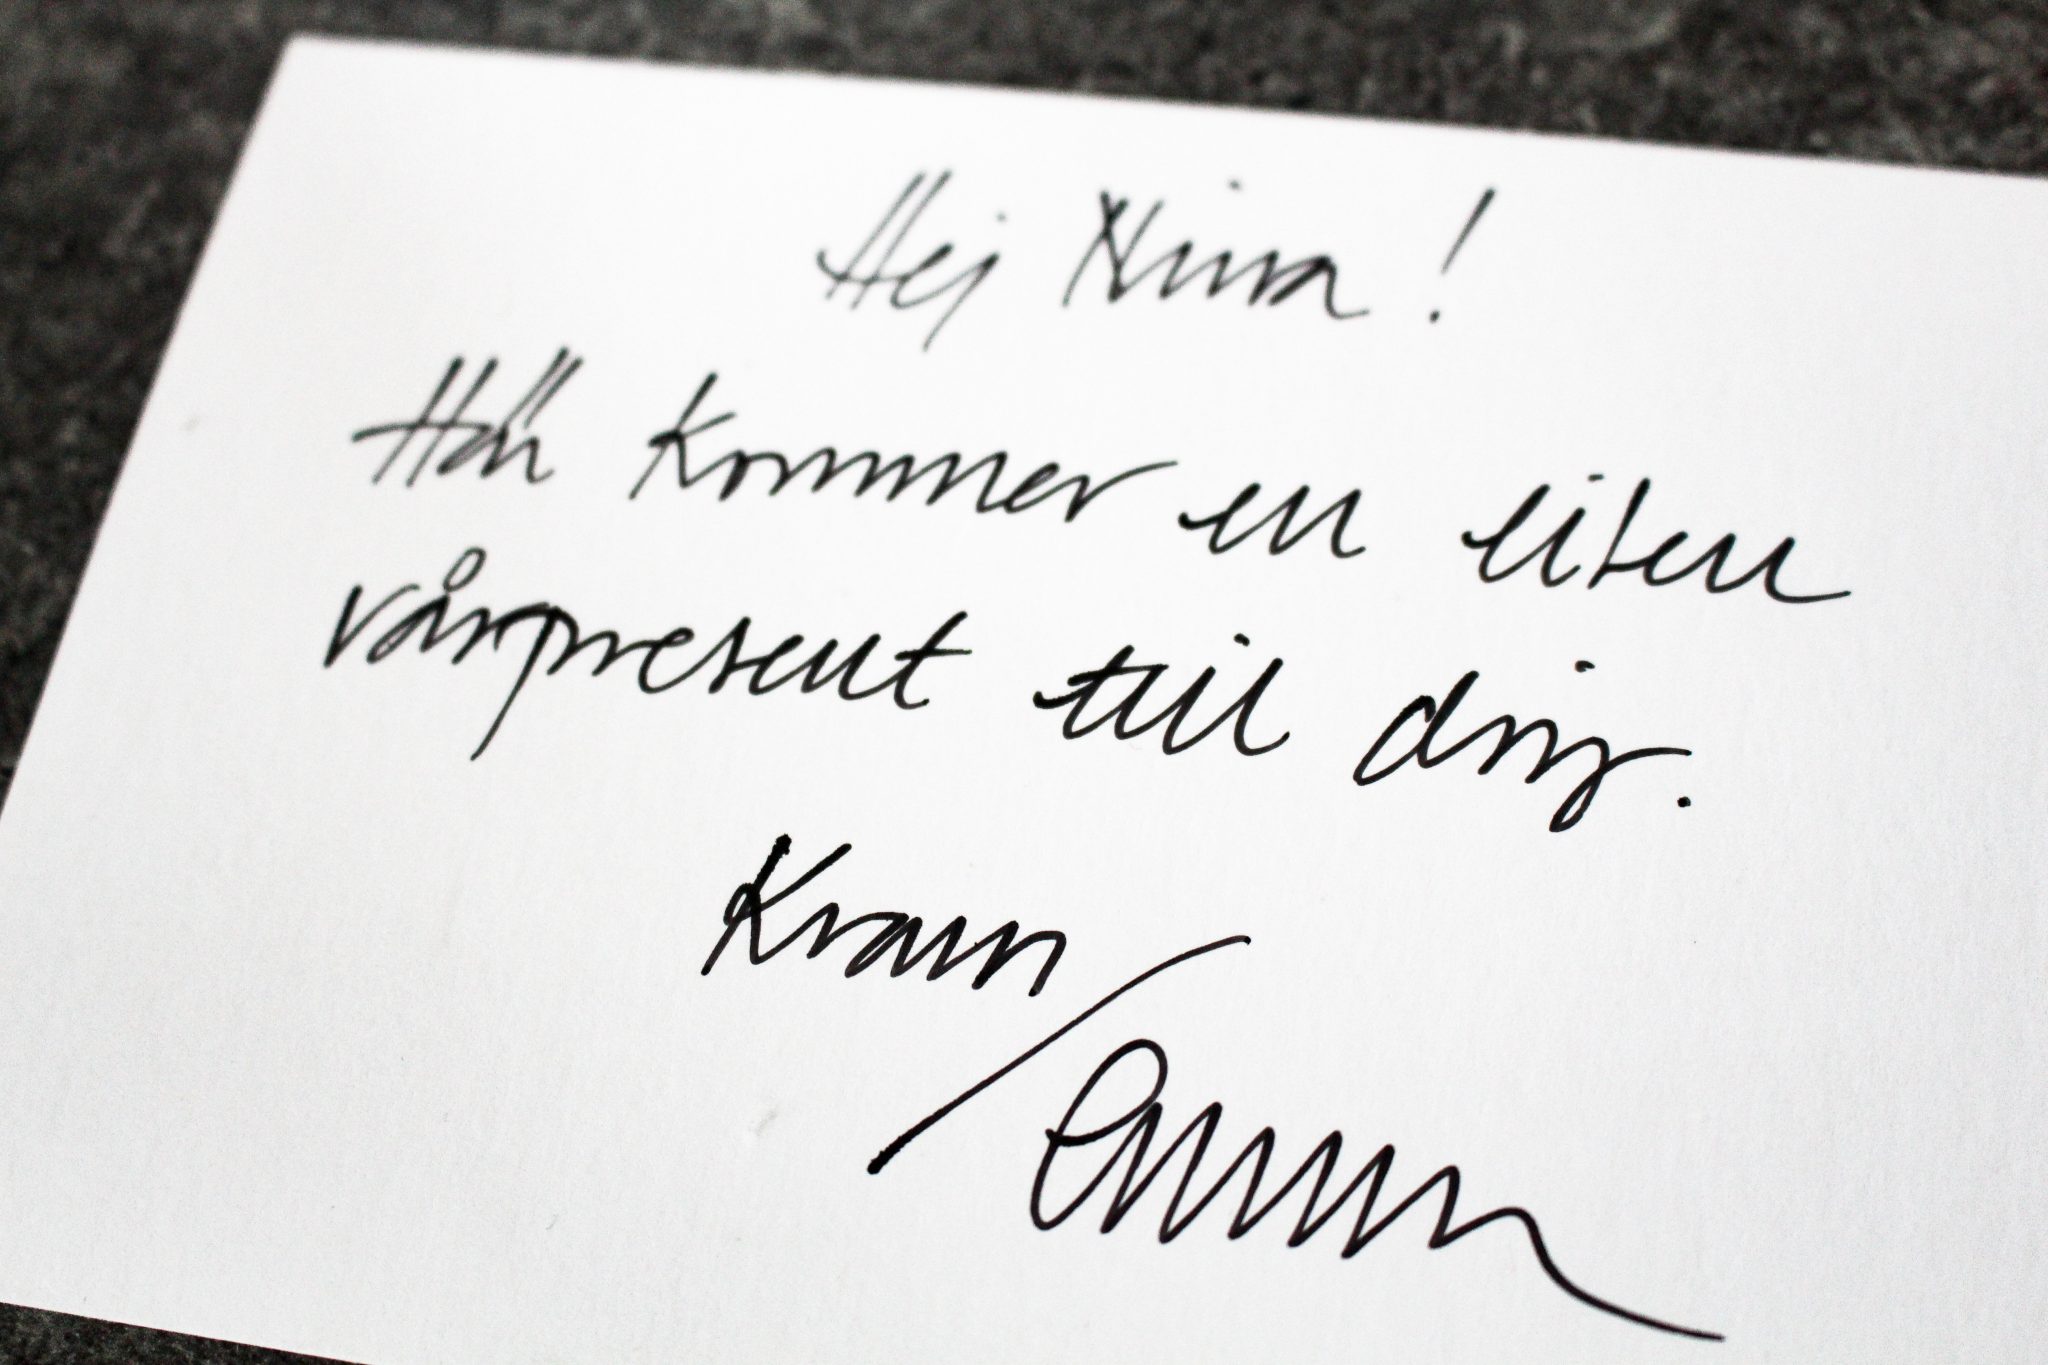 Hej Nina!
Här kommer en liten
vårpresent till dig.
Kram/